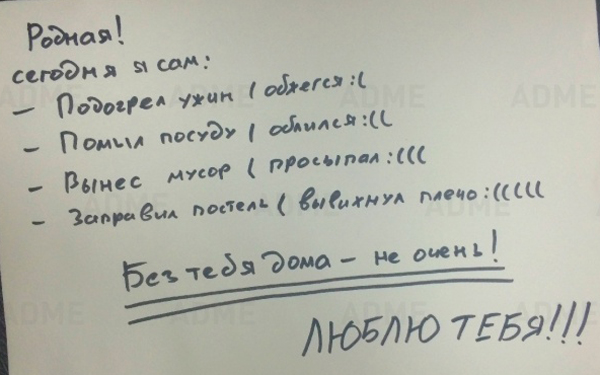 Родная!
сегодня я сам:
– Подогрел ужин ( обжегся :(
– Помыл посуду ( облился :((
– Вынес мусор ( просыпал :(((
– Заправил постель ( вывихнул плечо :(((((
Без тебя дома – не очень!
ЛЮБЛЮ ТЕБЯ!!!
ADME
ADME
ADME
ADME
ADME
ADME